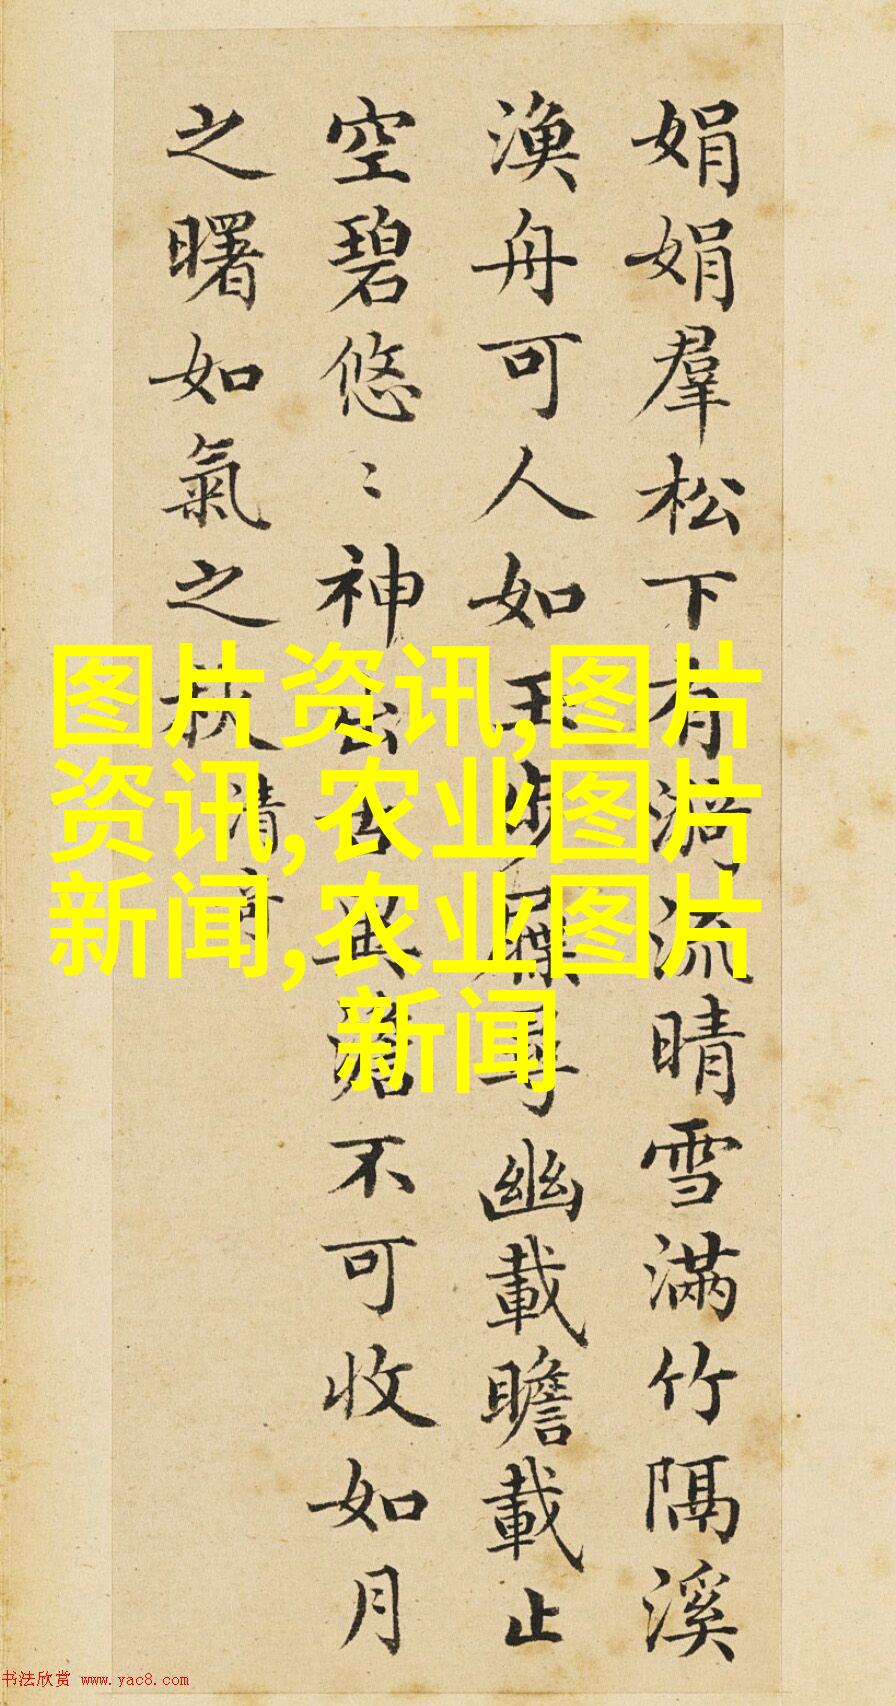 娟娟羣松下有漪流晴雪滿竹隔溪
漁舟可人如玉步屧尋幽載瞻載止
空碧悠〻神出古異澹不可收如月
之曙如氣之秋清奇
图片资讯,图片
资讯,农业图片
新闻,农业图片
新闻
书法欣赏 www.yac8.com